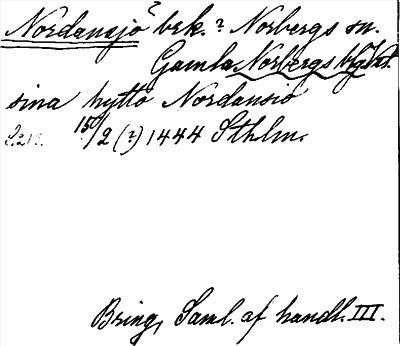 Nordansjö? brk.? Norbergs sn.
Gamla Norbergs bght.
sina hytto Nordansio
15/2 (?) 1444 Sthlm.
Bring, Saml. af handl. III.